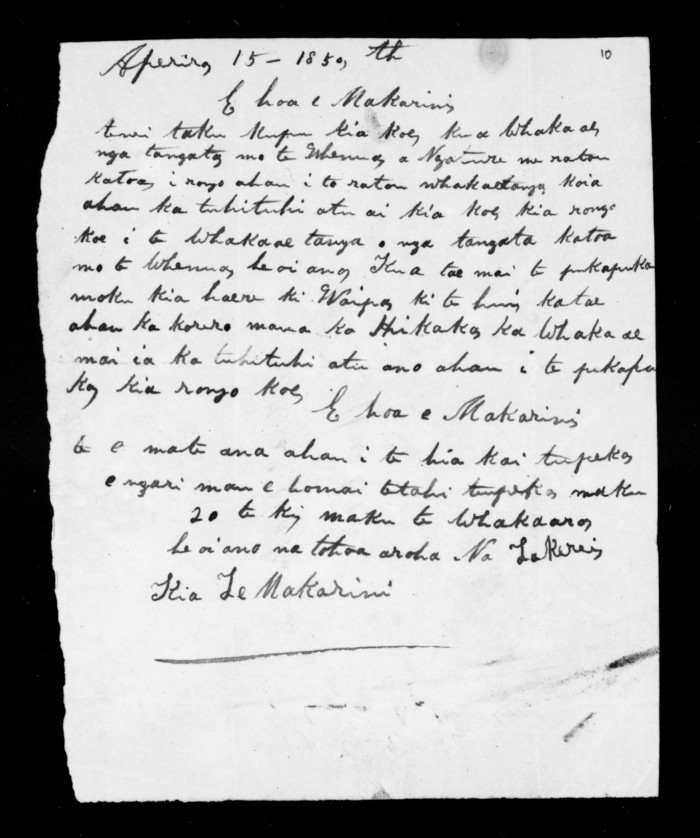 Aperira 15 - 1850, th
10
E hoa e Makarini
tenei taku kupu kia koe, kua Whakaae
nga tangata mo te Whenua a Ngature me ratou
katoa, i rongo ahau i to ratou whakaetanga koia
ahau ka tuhituhi atu ai kia koe kia rongo
koe i te Whakaae tanga o nga tangata katoa
mo te Whenua, he oi ano, Kua tae mai te pukapuka
moku kia haere ki Waipa, ki te hui katae
ahau ka korero mawa ka Hikaka, ka Whaka ae
mai ia ka tuhituhi atu ano ahau i te pukapu
ka, kia rongo koe,
E hoa e Makarini
te e mate ana ahau i te hia kai tupeka
e ngari mau e homai tetahi tupeka maku
20 te kj maku te Whakaaro
he oi ano na tohoa aroha Na
Kia Te Makarini